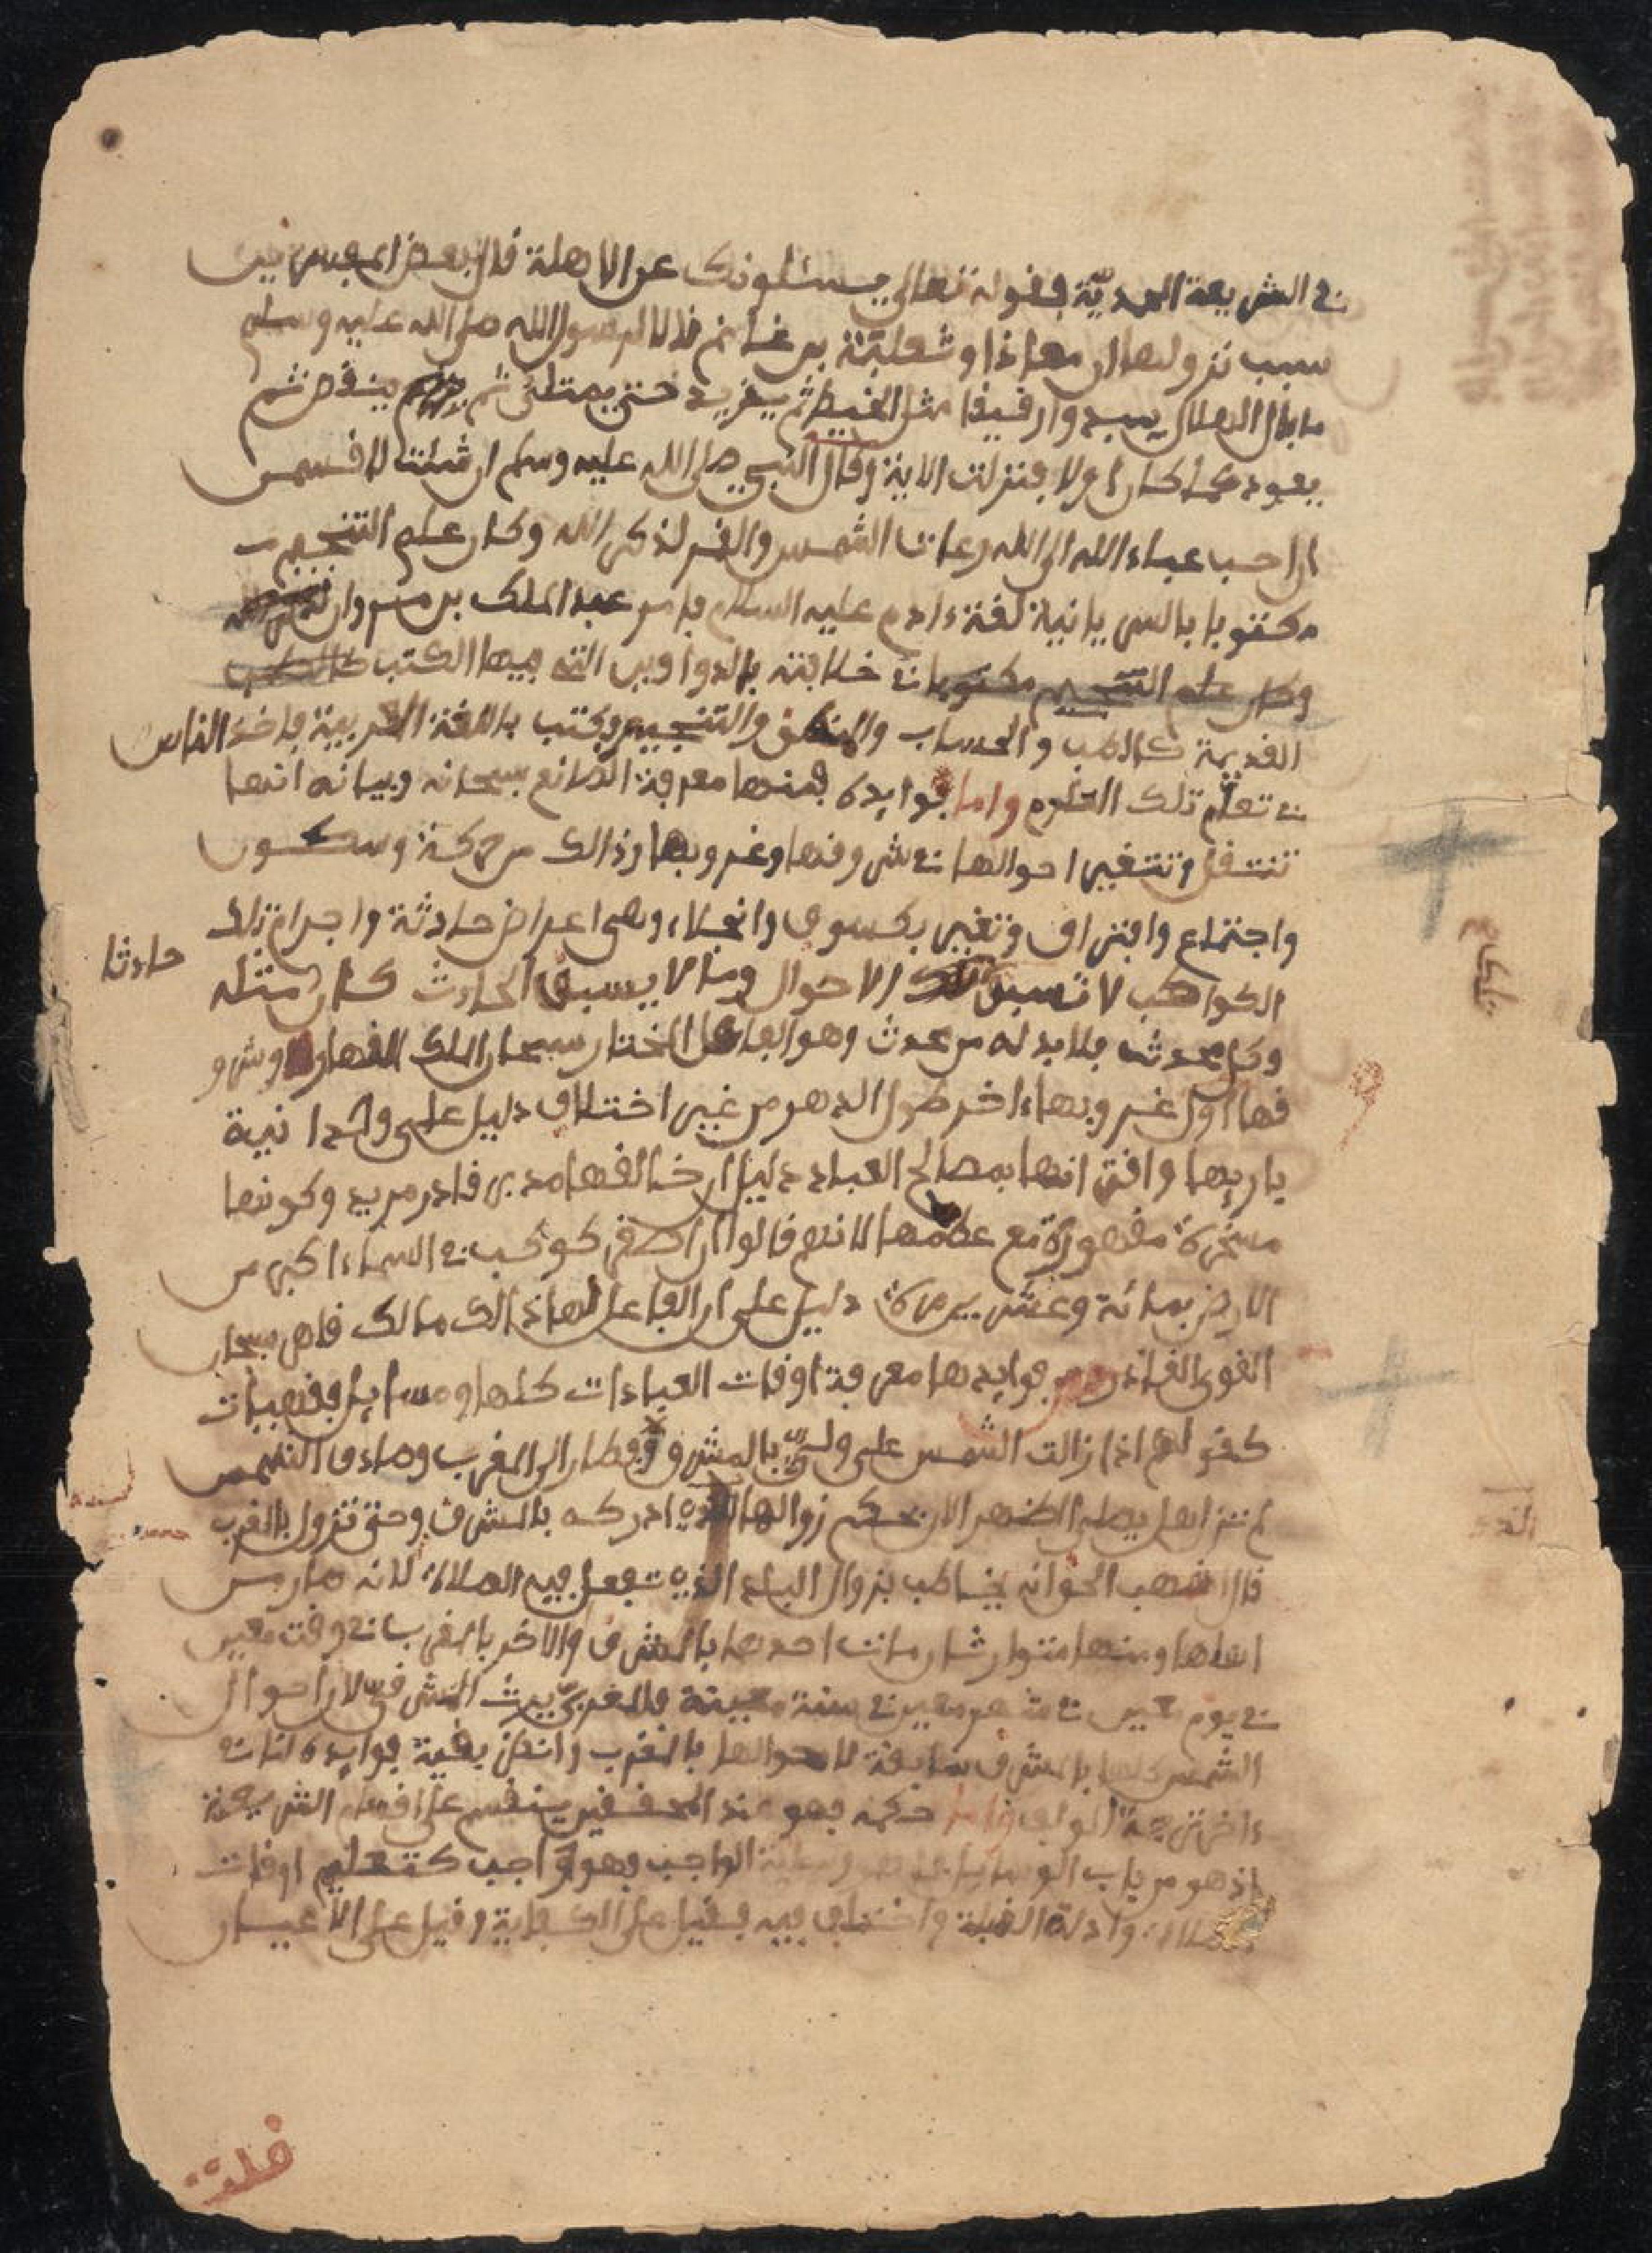 في الشريعة المحمدية فقوله تعالى يسئلونك عن الاهلة قال بعض المفسرين
سبب نزولها ان معاذا وثعلبة بن غانم قالا لرسول الله صلى الله عليه وسلم
ما بال الهلال يبدوا رقيقا مثل الخيط ثم يزيد حتى يمتلئ ثم ينقص ثم
يعود كما كان اولا فنزلت الاية وقال النبي صلى الله عليه وسلم ان شئت لاقسمن
ان احب عباد الله الى الله رعات الشمس والقمر لذكر الله وكان علم التنجيم
مكتوبا بالسريانية لغة ءادم عليه السلام فامر عبد الملك بن مروان
وكان علم التنجيم مكتوبا في خلافته بالدواوين التي فيها الكتب
القديمة كالطب والحساب والمنطق والتنجيم وكتب باللغة العربية فاخذ الناس
في تعلم تلك العلوم واما فوايده فمنها معرفة الصانع سبحانه وبيانه انها
تنتقل وتتغير احوالها في شروقها وغروبها وذالك من حركة وسكون
واجتماع وافتراق وتغير بكسوف وانجلاء وهي اعراض حادثة واجرام تلك
حادثا
الكواكب لا تسبق تلك الاحوال وما لا يسبق الحادث كان مثله
وكل محدث فلا بد له من محدث وهو الفاعل المختار سبحان الملك القهار وشرو
قها اول غروبها ءاخر طول الدهر من غير اختلاف دليل على وحدانية
باريها واقترانها بمصالح العباد دليل ان خالقها مدبر قادر مريد وكونها
مسخرة مقهورة مع عظمها لانهم قالوا ان اصغر كوكب في السماء اكبر من
الارض بمائة وعشرين مرة دليل على ان الفاعل لهاذالك مالك قاهر سبحان
القوي القادر ومن فوايدها معرفة اوقات العبادات كلها ومسايل فقهيات
كقولهم اذا زالت الشمس على ولي بالمشرق فطار الى المغرب وصادف الشمس
لم تزل هل يصلى الظهر الان بحكم زوالها الذي ادركه بالمشرق وحتى تزول بالمغرب
قال الحوانه يخاطب بزوال البلد الذي تفعل فيه الصلاة لانه صار من
اهلها ومنها متوارثان مات احدهما بالمشرق والاخر بالمغرب في وقت معين
في يوم معين في شهر معين في سنة معينة فالمغربي يرث المشرقي لان احوال
الشمس كلها بالمشرق سابقة لاحوالها بالمغرب وانظر بقية فوايده في
ءاخر ترجمة المولف واما حكمه فهو عند المحققين ينقسم على اقسام الشريعة
اذ هو من باب الوسايل الواجب فهو واجب كتعلم اوقات
وادلة القبلة واختلف فيه فقيل على الكفاية وقيل على الاعيان